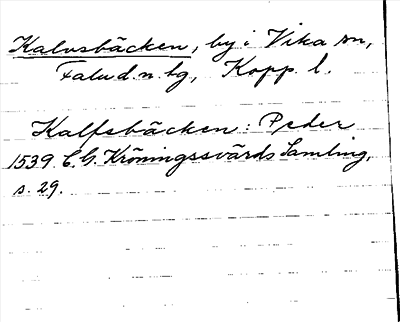 Kalvsbäcken, by i Vika sn,
Falu d. n. tg, Kopp. l.
Kalfsbäcken: Peder
1539. C. G. Kröningssvärds Samling,
s. 29.